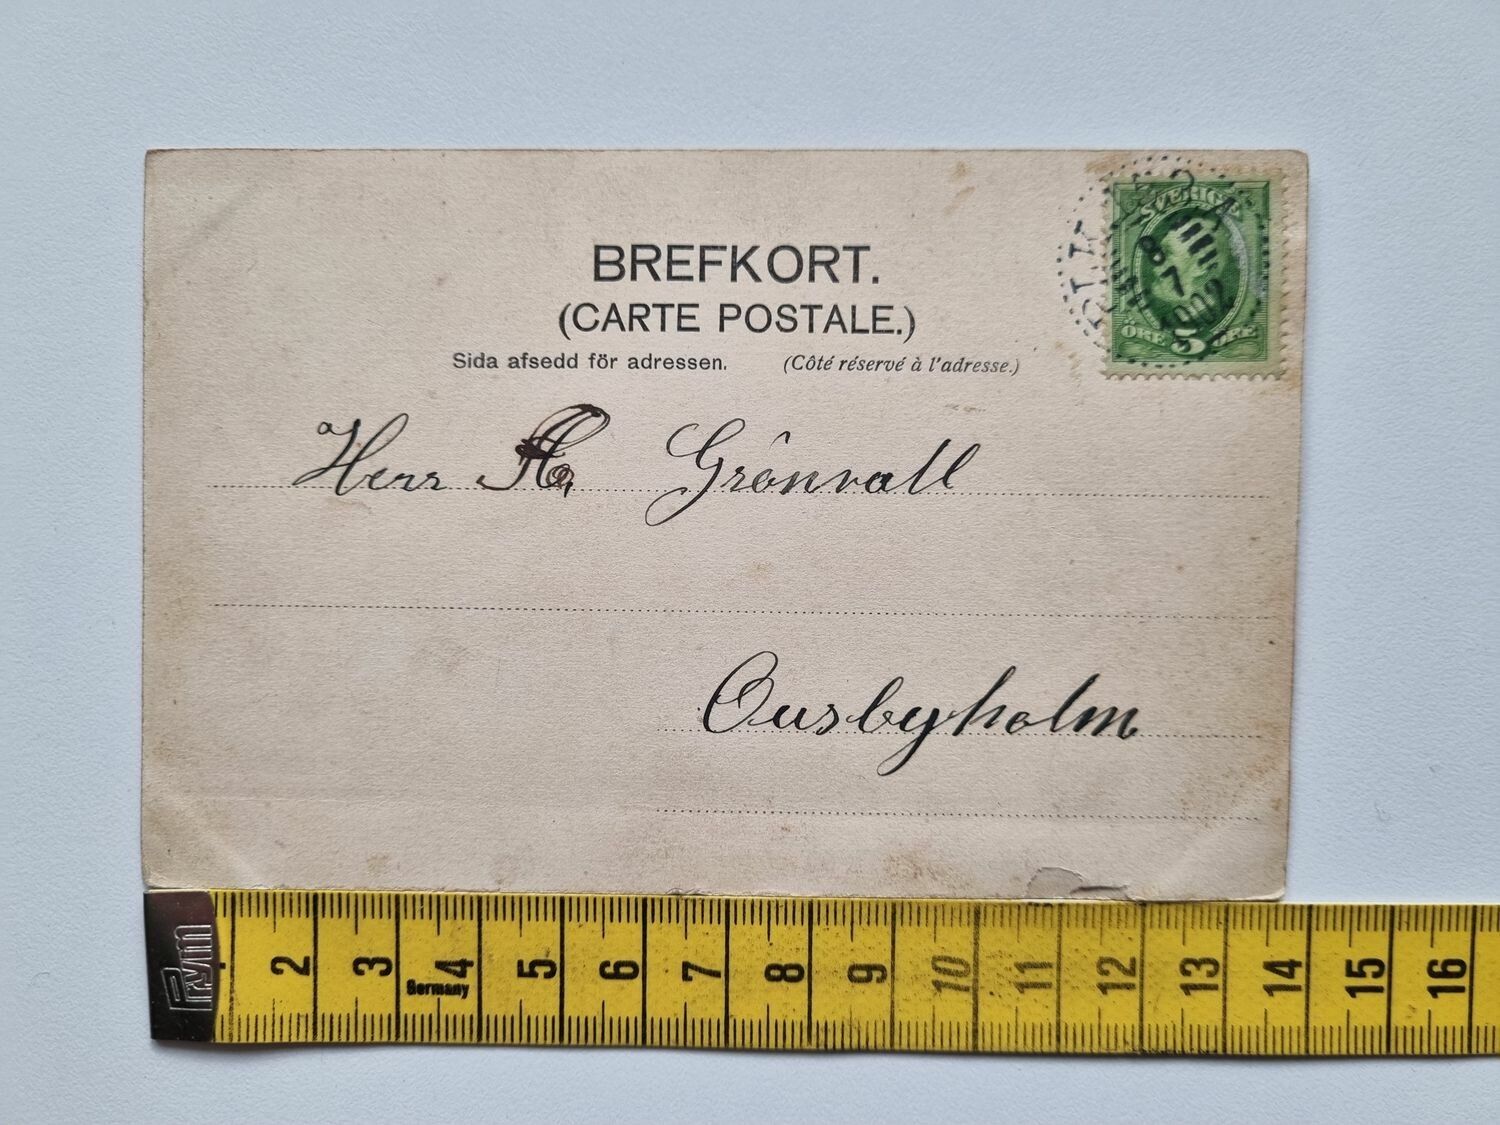 BREFKORT.
(CARTE POSTALE.)
Sida afsedd för adressen. (Côté réservé à l'adresse.)
SVERIGE
8 7
1902
ÖRE 5 ÖRE
Herr Grönvall
Ousbyholm
Prym
2 3 4 5 6 7 8 9 10 11 12 13 14 15 16
Germany